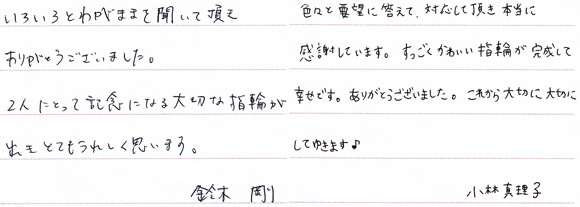 いろいろとわがままを聞いて頂き
ありがとうございました。
2人にとって記念になる大切な指輪が
出来とてもうれしく思います。
鈴木 剛
色々と要望に答えて、対応して頂き本当に
感謝しています。すっごくかわいい指輪が完成して
幸せです。ありがとうございました。これから大切に大切に
してゆきます♪
小林真理子